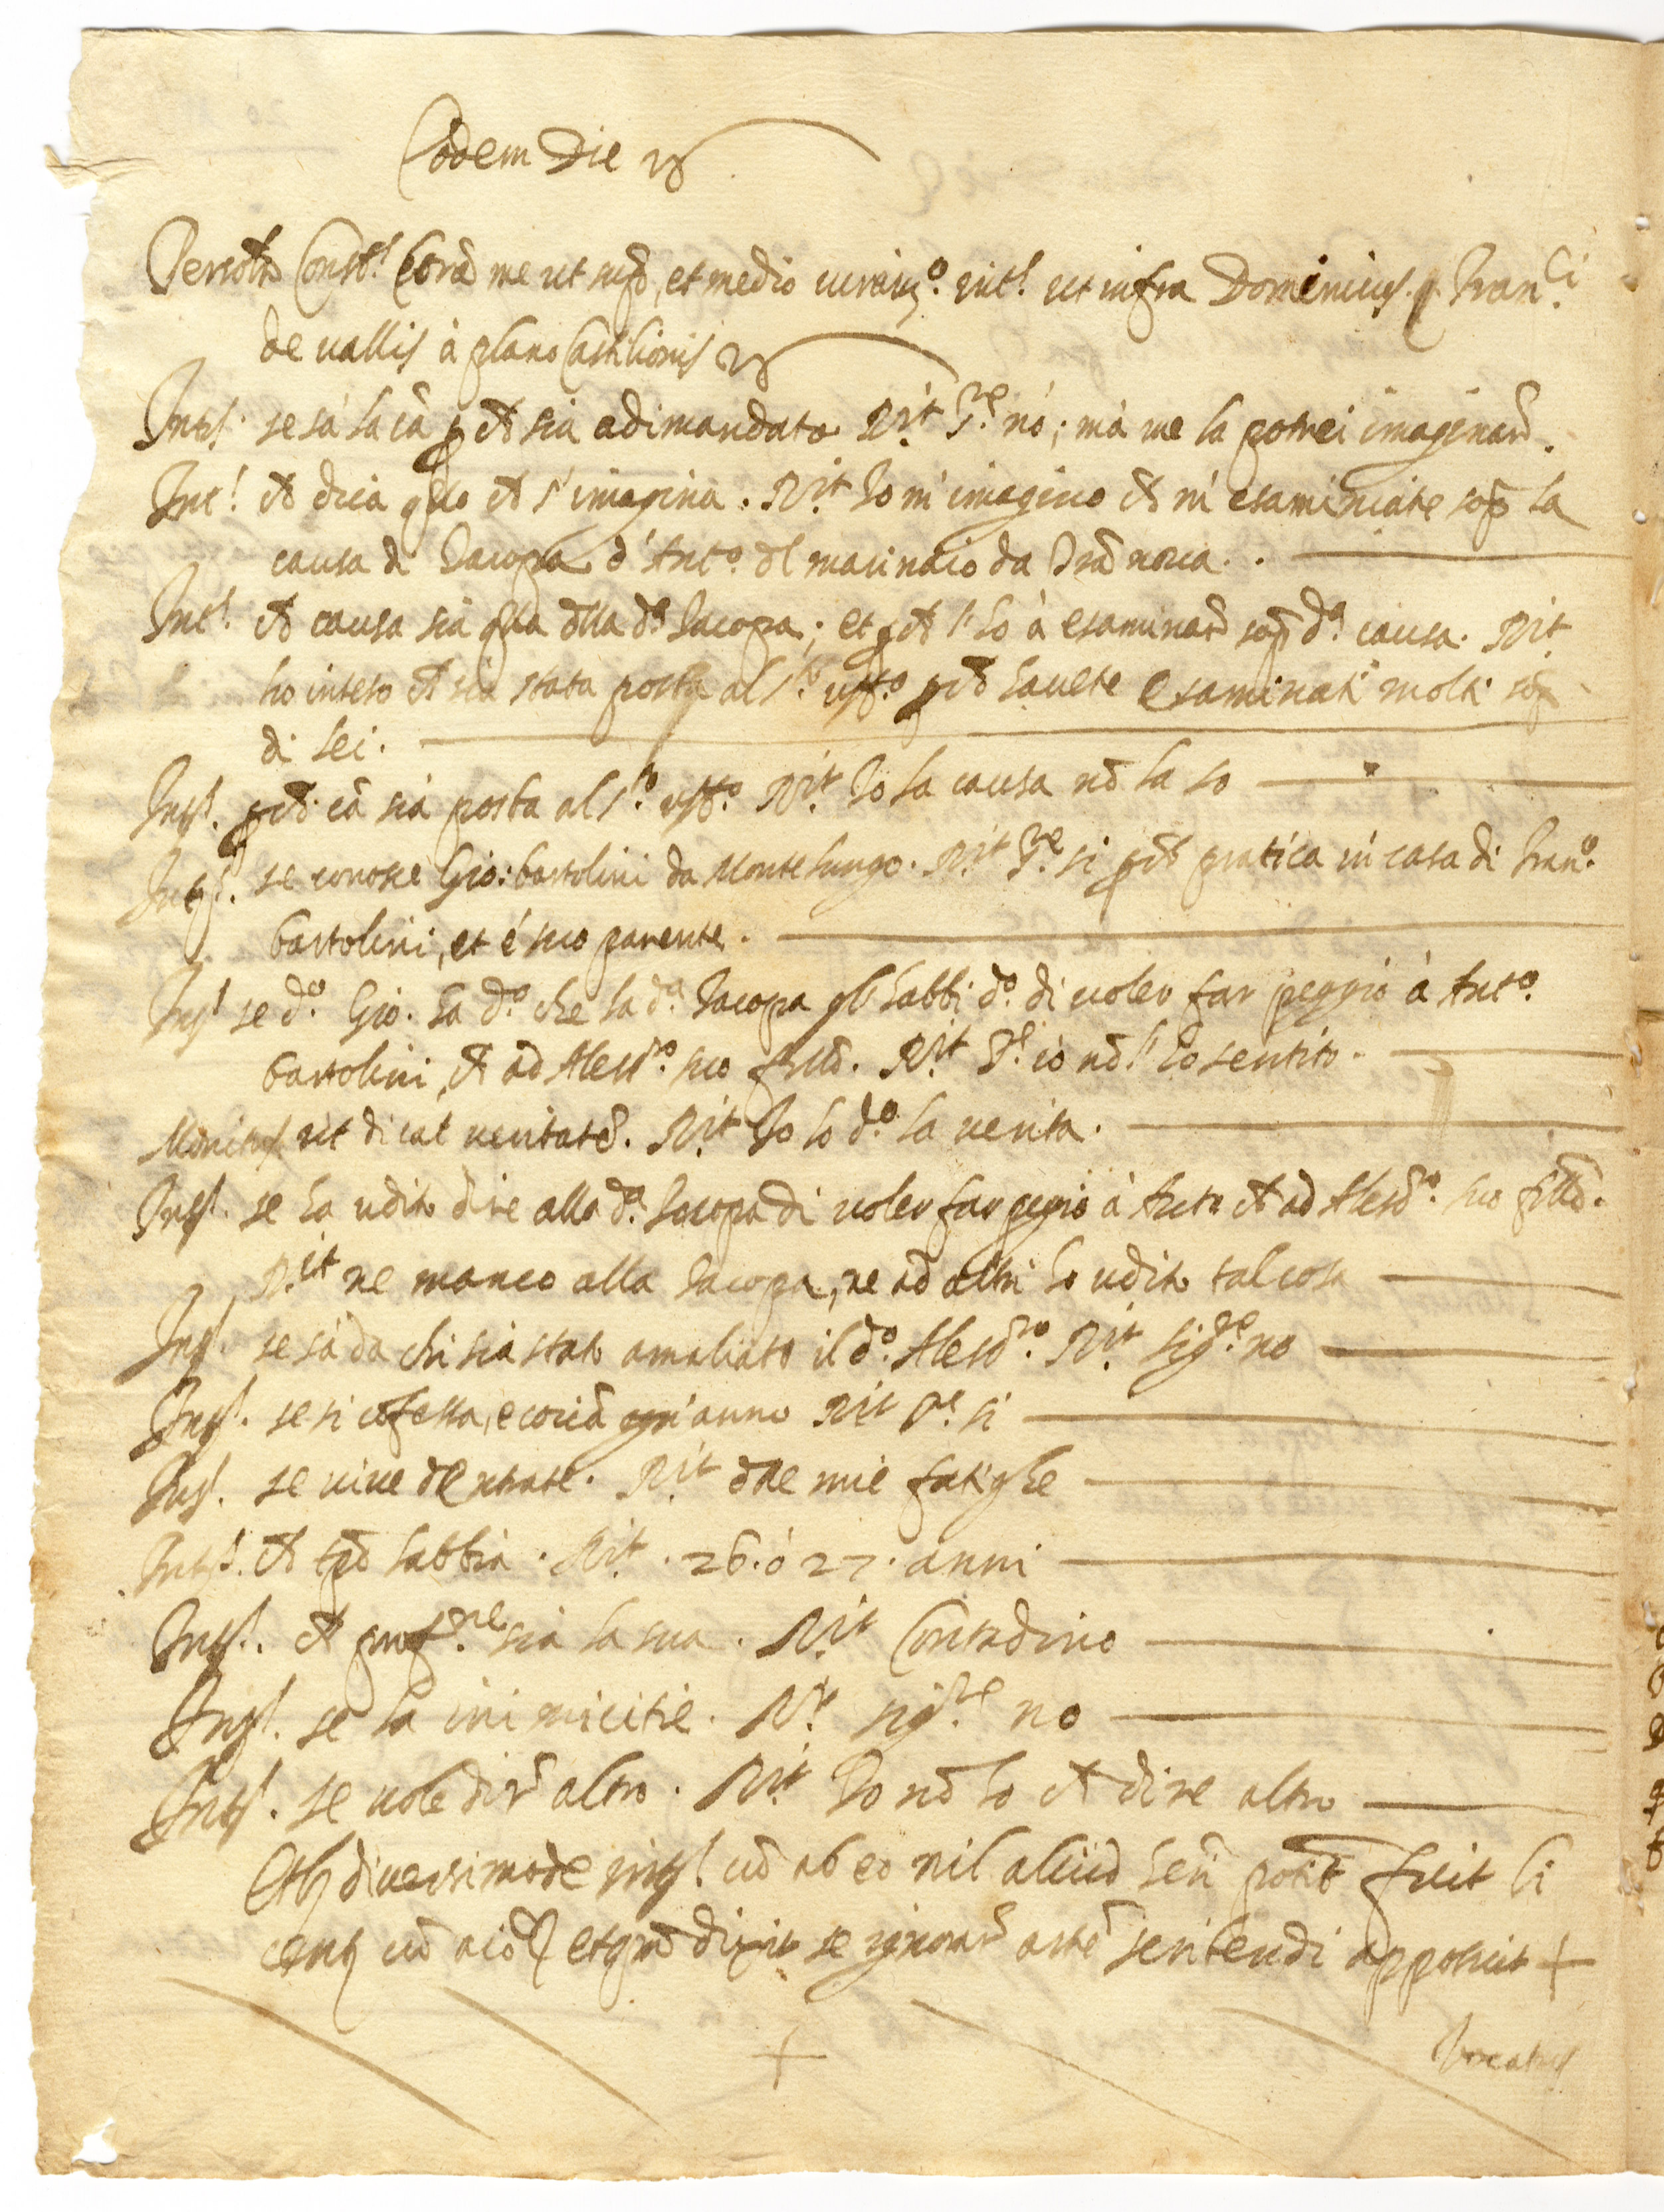 Eodem Die
Personalr Const.s Corā me ut supō, et medio iuram.o int.s ut infra Dominicus q. Fran.ci
de vallis à plano Castilionis
Int.s se sà la cā p ch sia adimandato R.it S.re nò; mà me la potrei imaginar̄.
Int.s ch dica qllo ch s'imagina. R.it Io m'imagino ch m'esaminiate sop̄ la
causa di Iacopa d'Ant.o dl marinaio da
Int.s ch causa sia qlla dlla d.a Iacopa; et p ch l'ho à esaminar̄ sop̄ d.a causa. R.it
ho inteso ch sia stata posta al S.to uff.o p ch havete esaminati molti sop̄
di lei.
Int.s p ch cā sia posta al S.to uff.o R.it Io la causa nō la so
Int.s se conosce Gio: bartolini da Monte lungo. R.it S.re si p ch pratica in casa di Fran.o
bartolini, et é suo parente.
Int.s se d.o Gio. ha d.o che la d.a Iacopa gli habbi d.o di voler far peggio à Ant.o
bartolini, ch ad Aless.ro suo fratō. R.it S.re io nō l'ho sentito.
Monitus ut dicat veritatē. R.it Io ho d.o la verita.
Int.s se ha udito dire alla d.a Iacopa di voler far pegio à Anto ch ad Alesd.o suo fratō.
R.it ne manco alla Iacopa, ne ad altri ho udito tal cosa
Int.s se sà da chi sia stato amaliato il d.o Alesd.ro R.it sig.re no
Int.s se si cōfessa, e comūca ogn'anno R.it S.re si
Int.s se vive dl entrate. R.it dlle mie fatighe
Int.s ch tpō habbia. R.it. 26. ò 27. anni
Int.s. ch prof.ne sia la sua. R.it Contadino
Int.s. se ha inimicitie. R.it sig.re no
Int.s. se vole dir̄ altro. R.it Io nō ho ch dire altro
Et diversimode int.s cū ab eo nil aliud heri potūt fuit li
cent. cū et quō dixit se ignorar̄ artē scribendi apposuit +
+
Vocatus